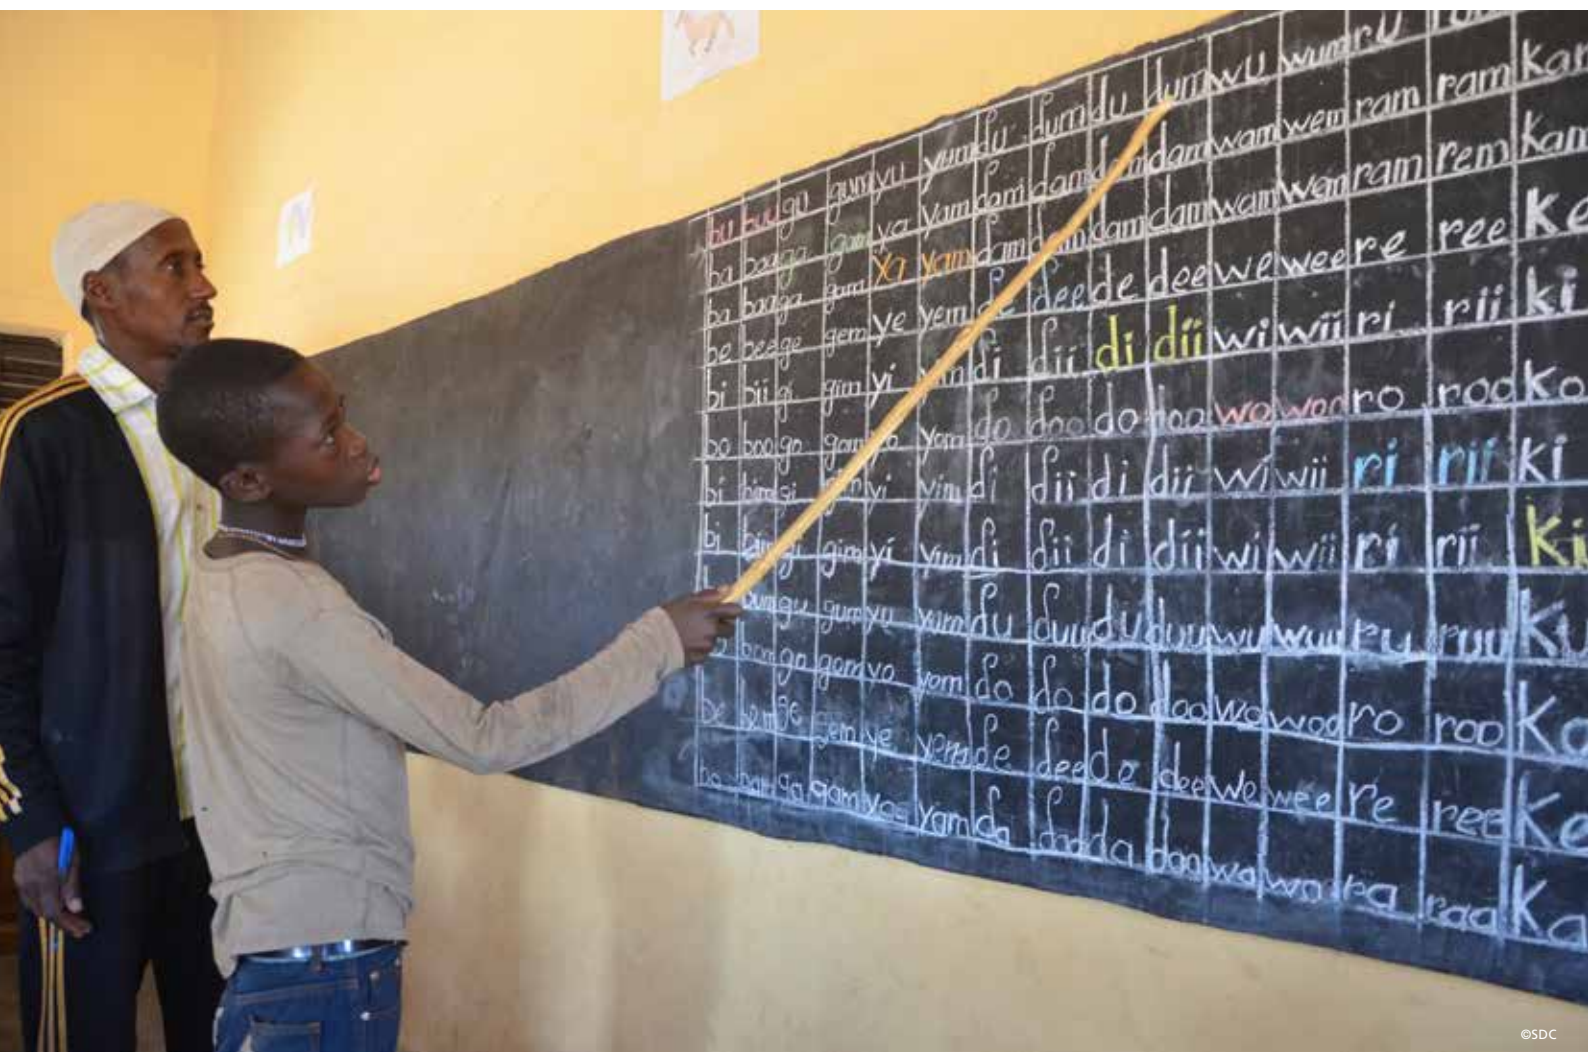 N
bu buu gu gum yu yum ɗu ɗum du dum wu wum ru
ba baa ga gam ya yam ɗam ɗam dam dam wam wem ram ram Kam
ba baa ga gam ya yam ɗam ɗam dam dam wam wem ram rem Kam
be bee ge gem ye yem ɗe ɗee de dee we wee re ree Ke
bi bii gi gim yi ɗi ɗii di dii wi wii ri rii ki
bo boo go gom yom ɗo ɗoo do doo wo woo ro roo Ko
bi bim gi yi yim ɗi ɗii di dii wi wii ri rii ki
bi bim gim yi yim ɗi ɗii di dii wi wii ri rii Ki
bum gu gum yu yum ɗu ɗuu du duu wu wuu ru ruu Ku
bom go gom yo yom ɗo ɗo do doo wo woo ro roo Ko
be bem ge gem ye yem ɗe ɗee de dee we wee re ree Ke
ba ga gam yaa yam ɗa ɗaa da daa wa wa ra raa Ka
©SDC